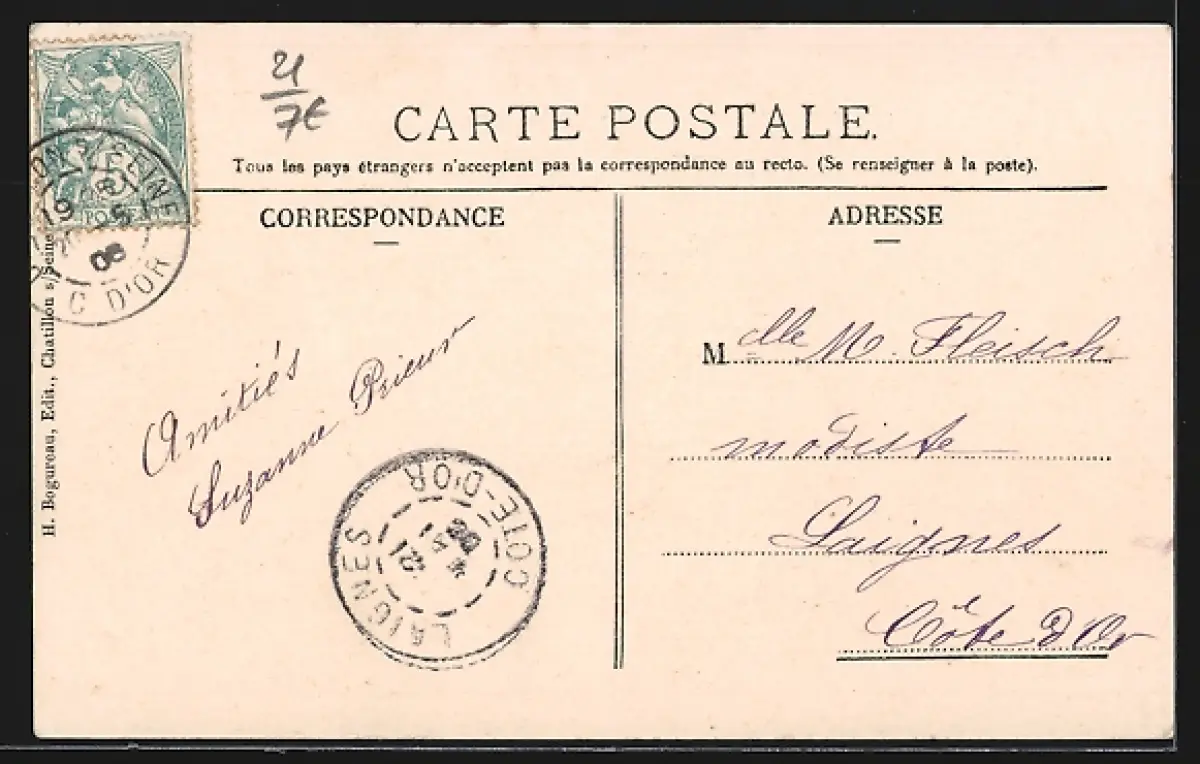 21
7€
CARTE POSTALE.
Tous les pays étrangers n'acceptent pas la correspondance au recto. (Se renseigner à la poste).
CORRESPONDANCE
ADRESSE
Amitiés
Suzanne Prieur
Mlle M. Fleisch
modiste
Laignes
Côte d'Or
H. Bogureau, Edit., Chatillon s/Seine
SEINE
19
08
C. D'OR
LAIGNES
COTE-D'OR
POSTE